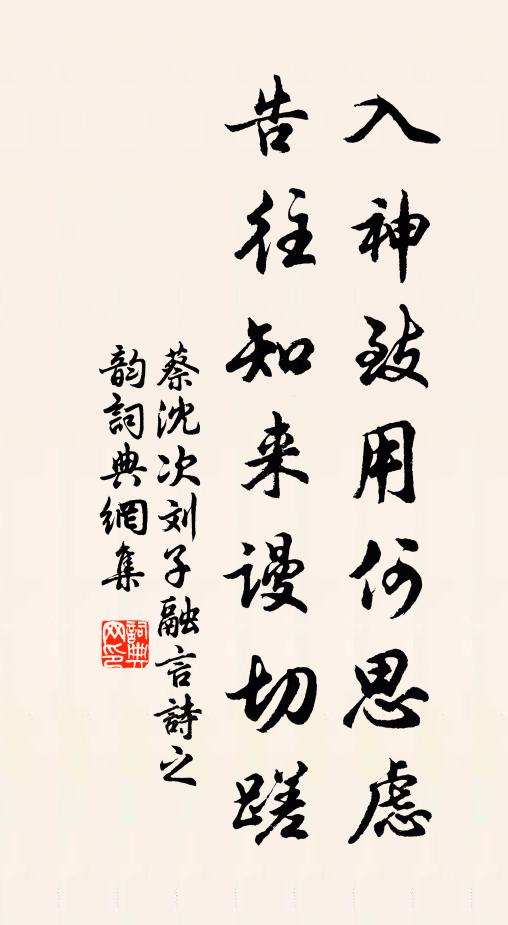 入神致用何思虑
告往知来谩切蹉
蔡沈次刘子融言詩之
韵詞典網集
詞典网印